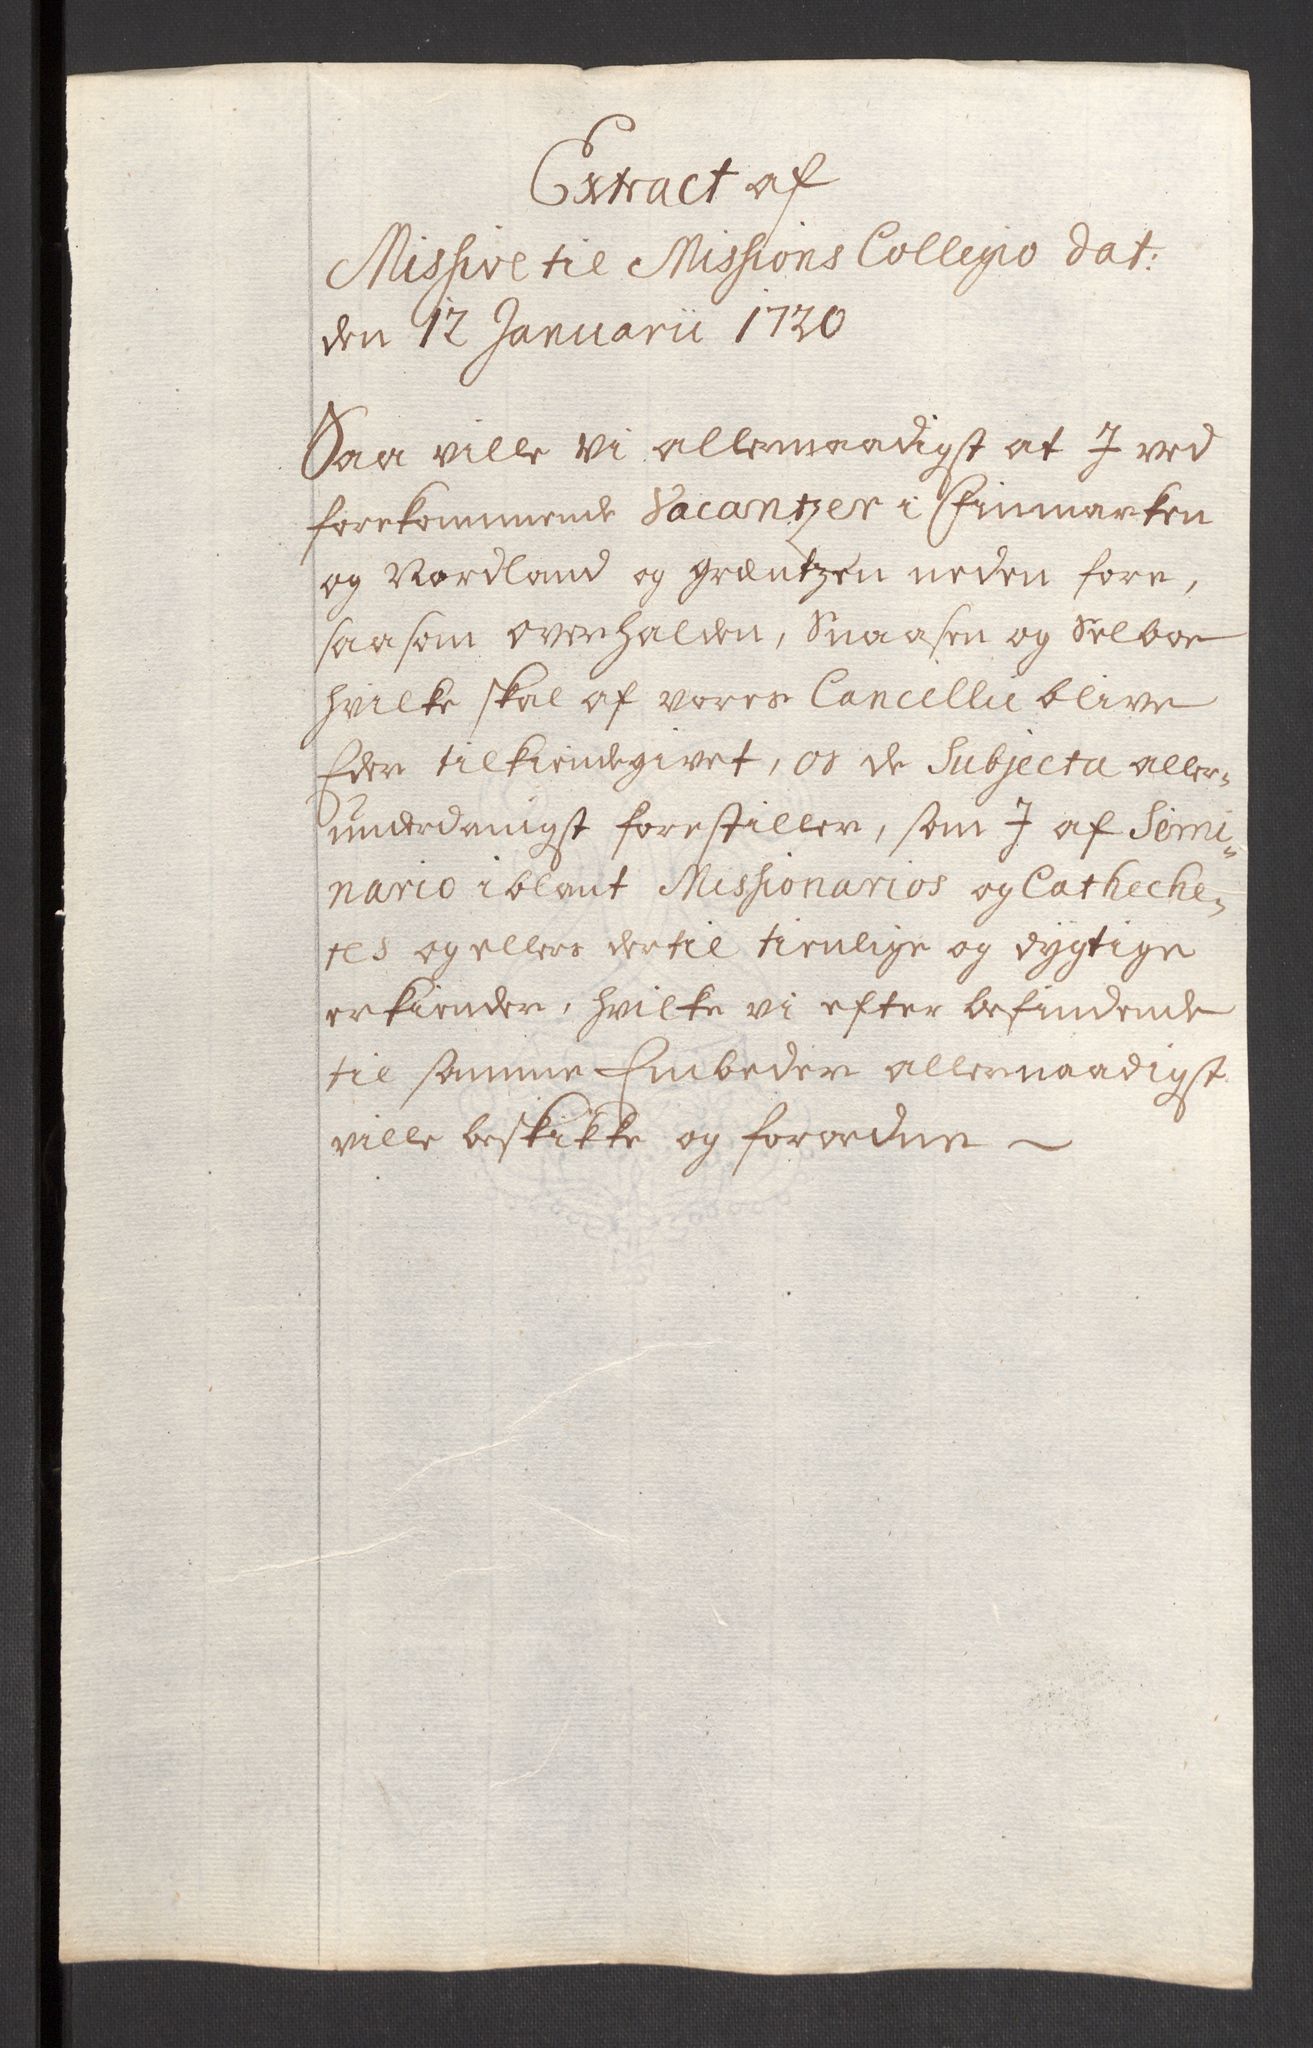 Extract af
Missive til Missions Collegio dat:
den 12 Januarii 1720
Saa ville vi allernaadigst at I ved
forekommende Vacantzer i Finmarken
og Nordland og græntzen neden fore,
saasom Overhalden, Snaasen og Selboe
hvilke skal af vores Cancellie blive
Eder tilkiendegivet, os de Subjecta aller-
underdanigst forestiller, som I af Semi-
nario iblant Missionarios og Catheche-
tes og ellers dertil tienlige og dygtige
erkiender, hvilke vi efter befindende
til samme Embeder allernaadigst
ville beskikke og forordne